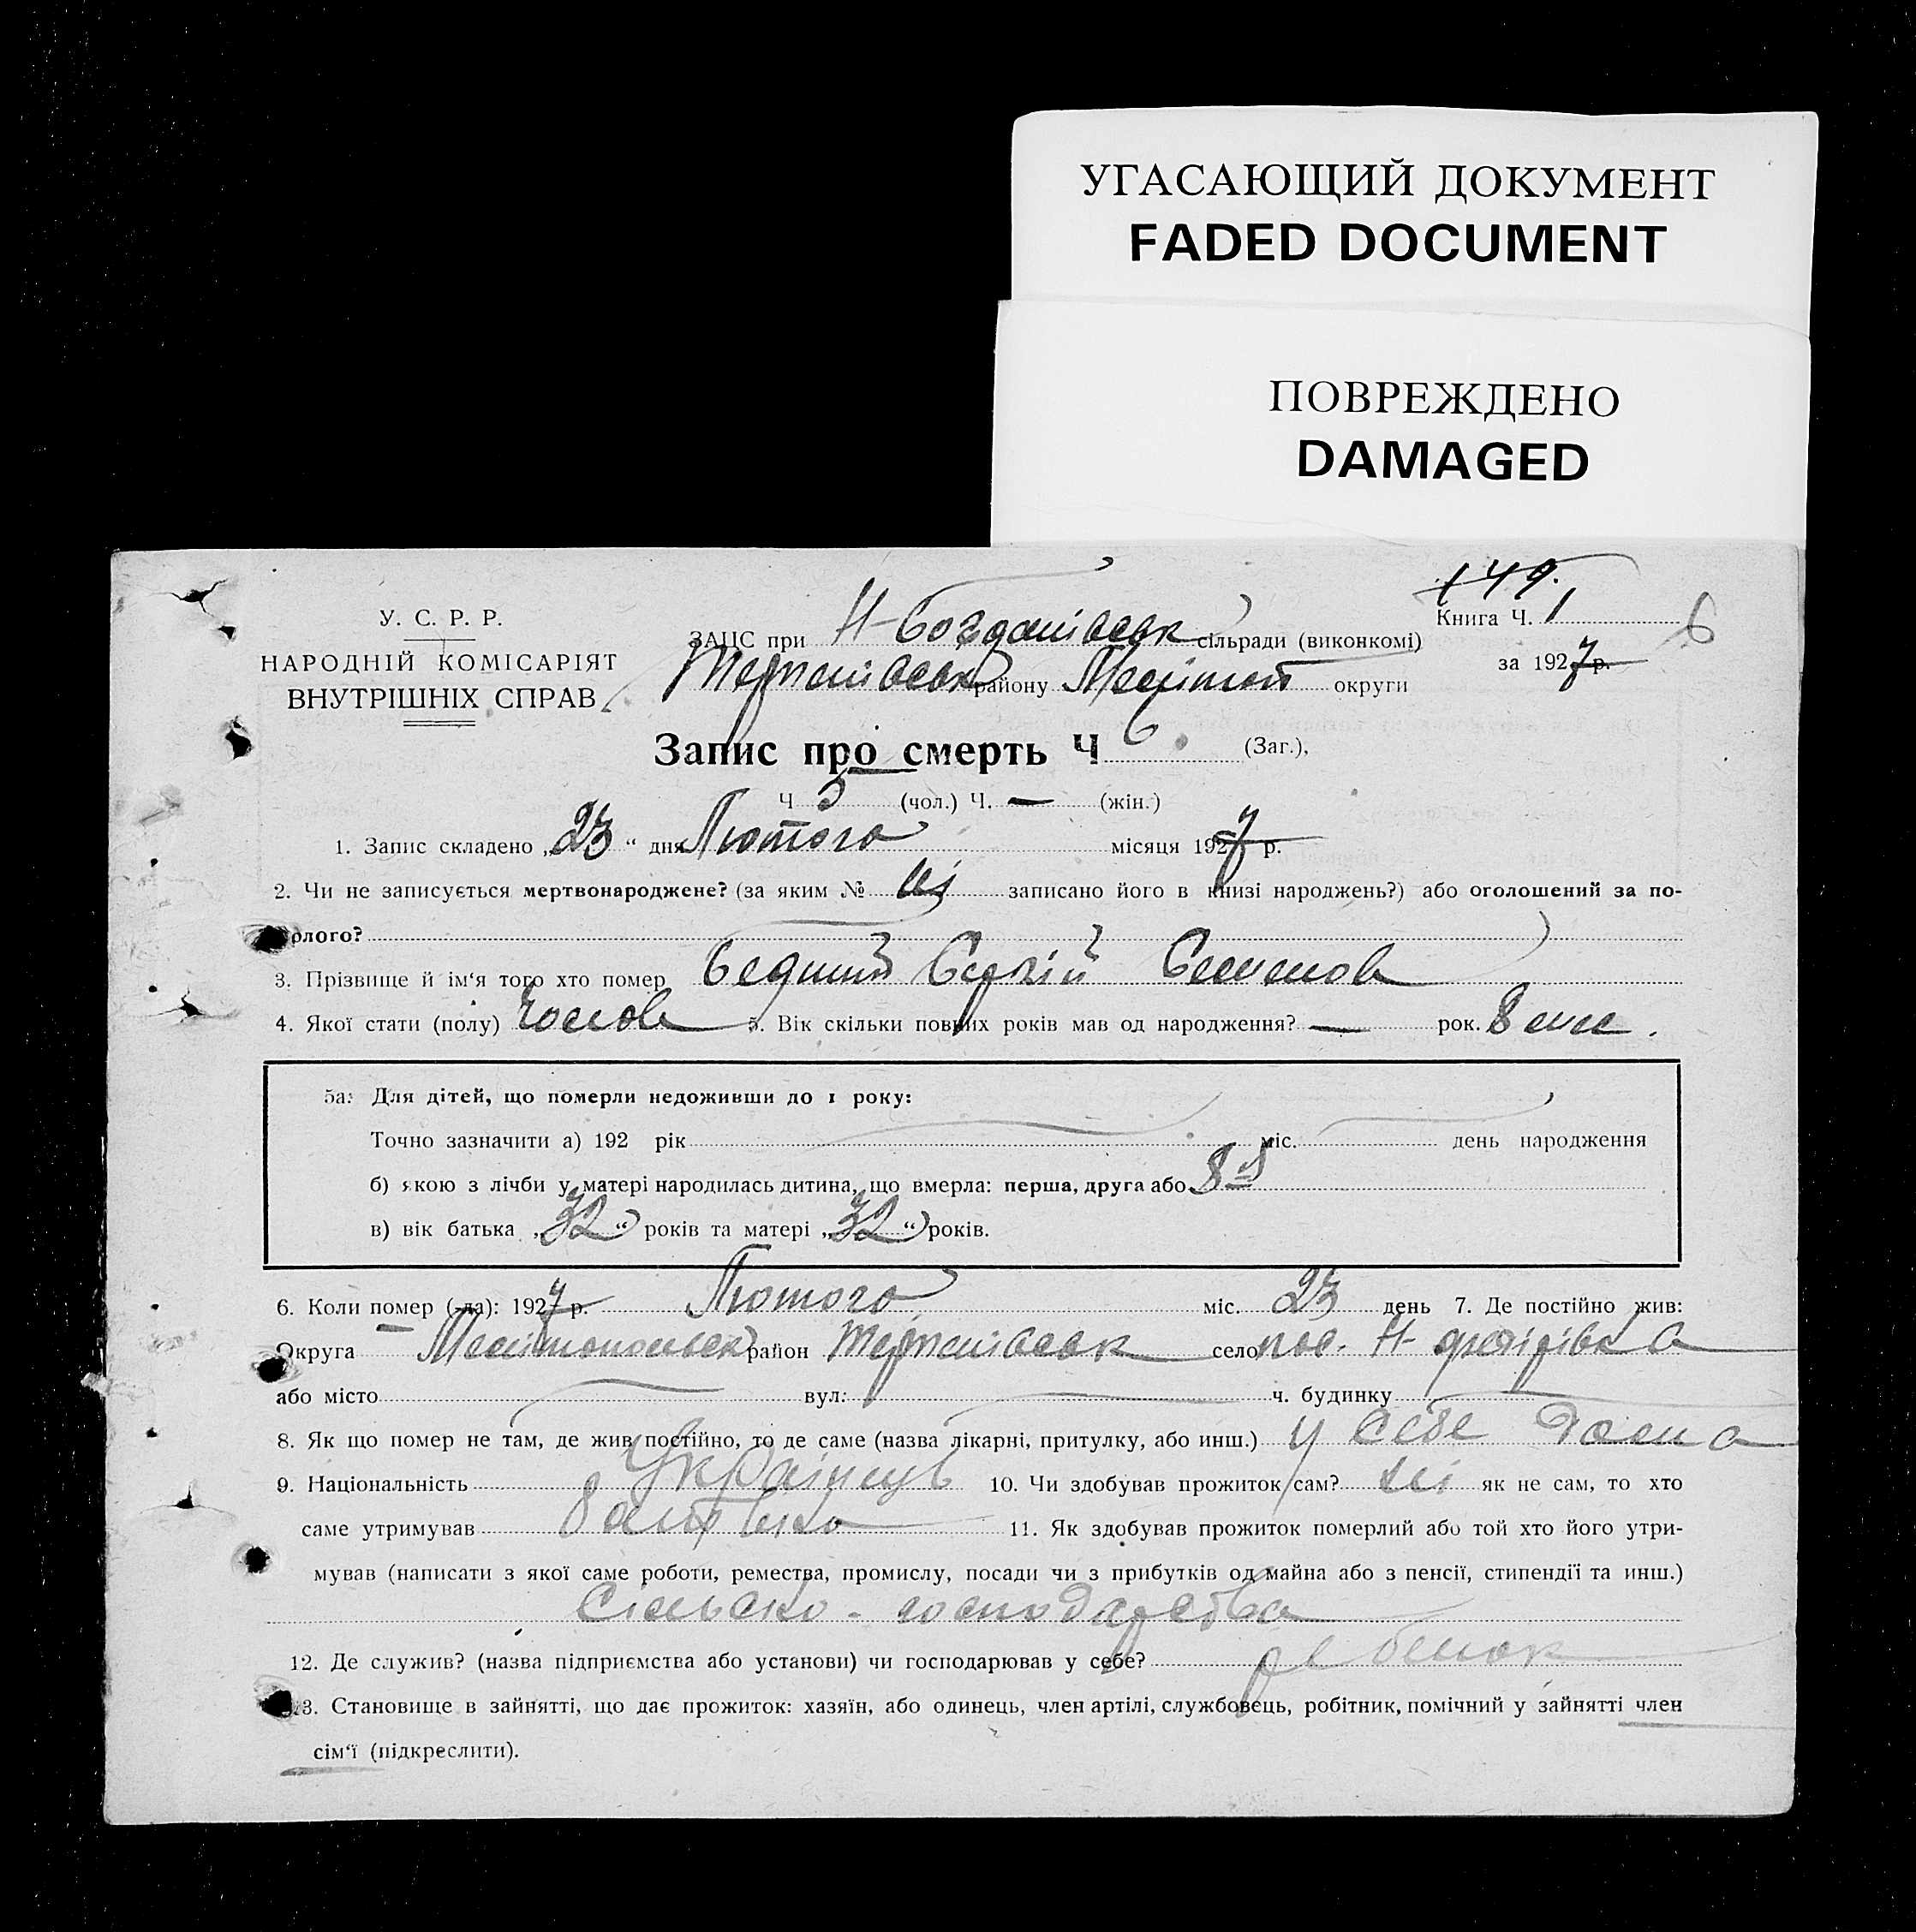 УГАСАЮЩИЙ ДОКУМЕНТ
FADED DOCUMENT
ПОВРЕЖДЕНО
DAMAGED
149.
У. С. Р. Р.
НАРОДНІЙ КОМІСАРІЯТ
ВНУТРІШНІХ СПРАВ
ЗАЦС при Н-Богданівськ сільради (виконкомі)
Книга Ч. 1
6
району Мелітоп округи
за 1927 р.
Запис про смерть Ч 6. (Заг.),
Ч 5 (чол.) Ч. — (жін.)
1. Запис складено „23“ дня Лютого місяця 1927 р.
2. Чи не записується мертвонароджене? (за яким № ні записано його в книзі народжень?) або оголошений за по-
рлого?
3. Прізвище й ім‘я того хто помер Бедний Сергій Семенов
4. Якої статі (полу) Чолов 5. Вік скільки повних років мав од народження? — рок. 8 міс.
5а: Для дітей, що померли недоживши до 1 року:
Точно зазначити а) 192 рік міс. день народження
б) якою з лічби у матері народилась дитина, що вмерла: перша, друга або 8-й
в) вік батька „32“ років та матері „32“ років.
6. Коли помер (-ла): 1927 р. Лютого міс. 23 день 7. Де постійно жив:
Округа Мелітопольськ район село пос. Н-
або місто вул: ч. будинку
8. Як що помер не там, де жив постійно, то де саме (назва лікарні, притулку, або инш.) у себе дома
9. Національність Українець 10. Чи здобував прожиток сам? ні як не сам, то хто
саме утримував батько 11. Як здобував прожиток померлий або той хто його утри-
мував (написати з якої саме роботи, ремества, промислу, посади чи з прибутків од майна або з пенсії, стипендії та инш.)
Сільсько-господарства
12. Де служив? (назва підприємства або установи) чи господарював у себе? ребенок
13. Становище в зайнятті, що дає прожиток: хазяїн, або одинець, член артілі, службовець, робітник, помічний у зайнятті член
сім‘ї (підкреслити).